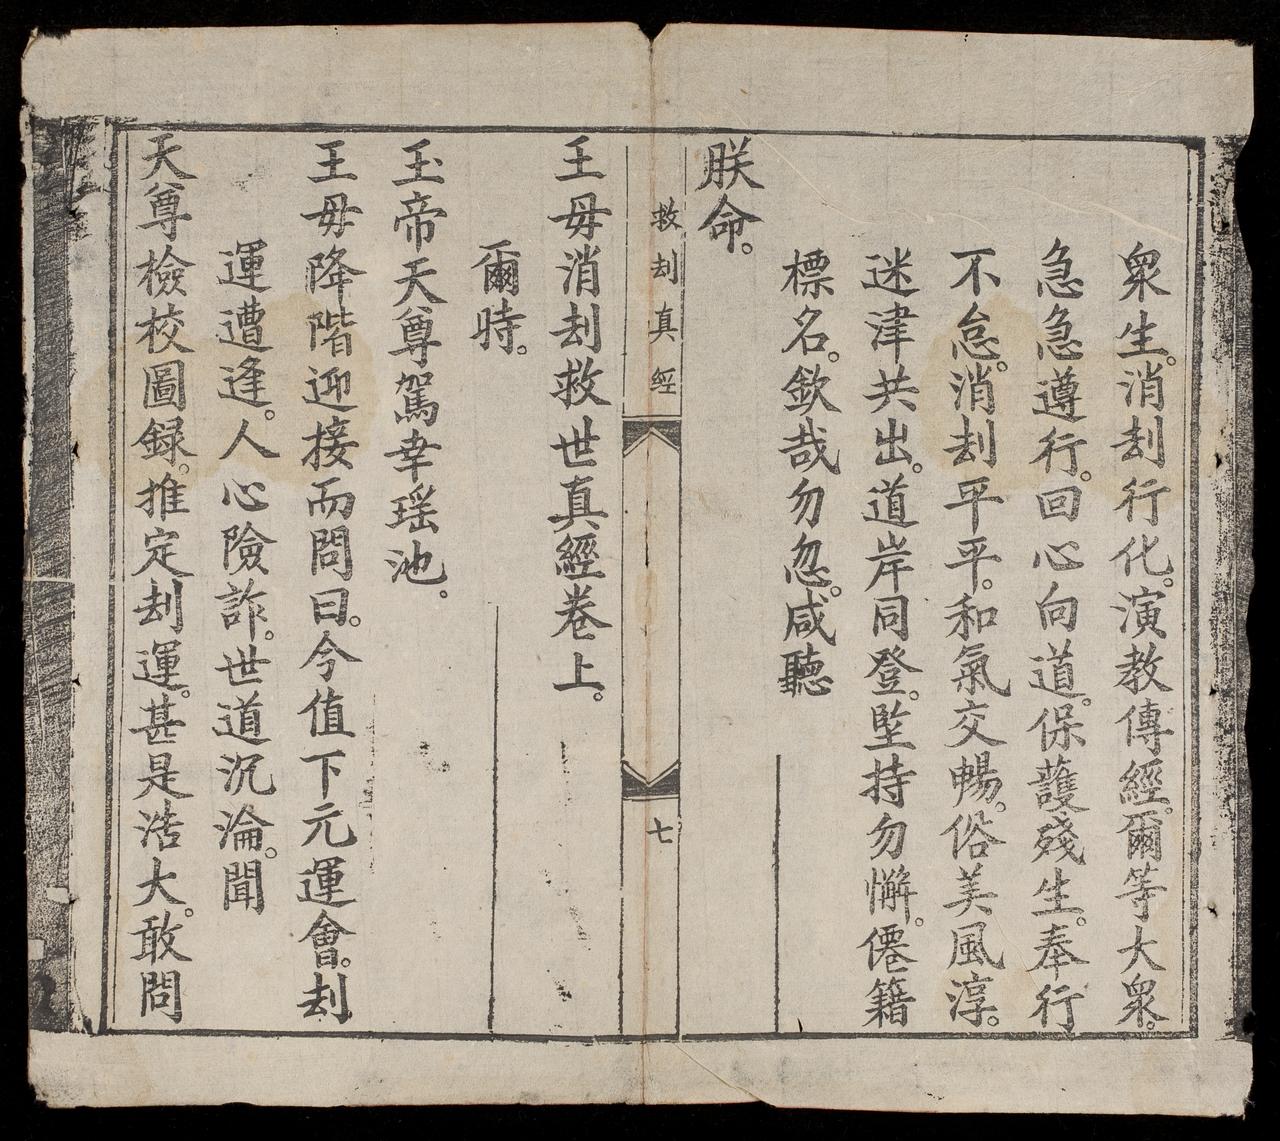 衆生。消刦行化。演教傳經。爾等大衆。
急急遵行。回心向道。保護殘生。奉行
不怠。消刦平平。和氣交暢。俗美風淳。
迷津共出。道岸同登。堅持勿懈。僊籍
標名。欽哉勿忽。咸聽
朕命。
救刦真經
七
王母消刦救世真經卷上。
爾時。
玉帝天尊駕幸瑶池。
王母降階迎接而問曰。今值下元運會。刦
運遭逢。人心險詐。世道沉淪。聞
天尊檢校圖録。推定刦運。甚是浩大。敢問